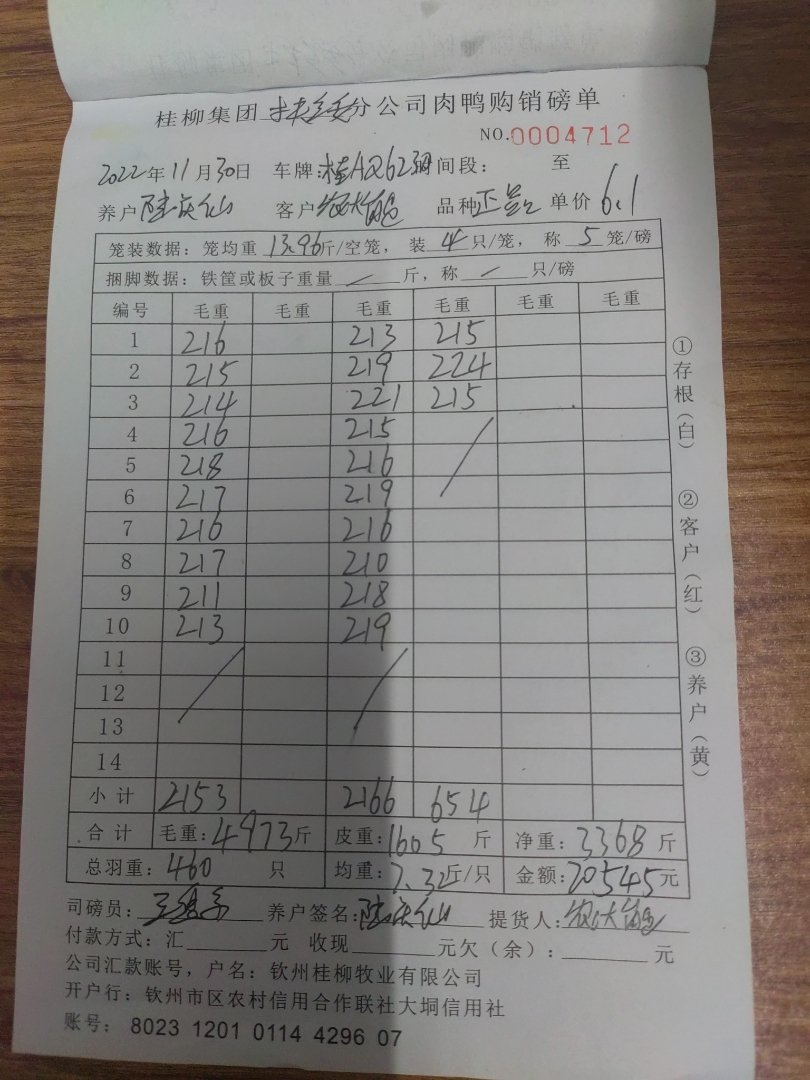 桂柳集团 分公司肉鸭购销磅单
NO.0004712
2022年11月30日 车牌:桂AQ623 间段: 至
养户 陆庆仙 客户 品种 正 单价 6.1
笼装数据: 笼均重 13.96斤/空笼, 装 4 只/笼, 称 5 笼/磅
捆脚数据: 铁筐或板子重量 / 斤, 称 / 只/磅
编号 毛重 毛重 毛重 毛重 毛重 毛重
1 216 213 215
2 215 219 224
3 214 221 215
4 216 215 /
5 218 216
6 217 219
7 216 216
8 217 210
9 211 218
10 213 219
11 / /
12
13
14
小计 2153 2166 654
合计 毛重:4973斤 皮重:1605斤 净重:3368斤
总羽重:460只 均重:7.32斤/只 金额:20545元
司磅员: 养户签名:陆庆仙 提货人:
付款方式: 汇 元 收现 元欠(余): 元
公司汇款账号, 户名: 钦州桂柳牧业有限公司
开户行: 钦州市区农村信用合作联社大垌信用社
账号: 8023 1201 0114 4296 07
①存根(白)
②客户(红)
③养户(黄)